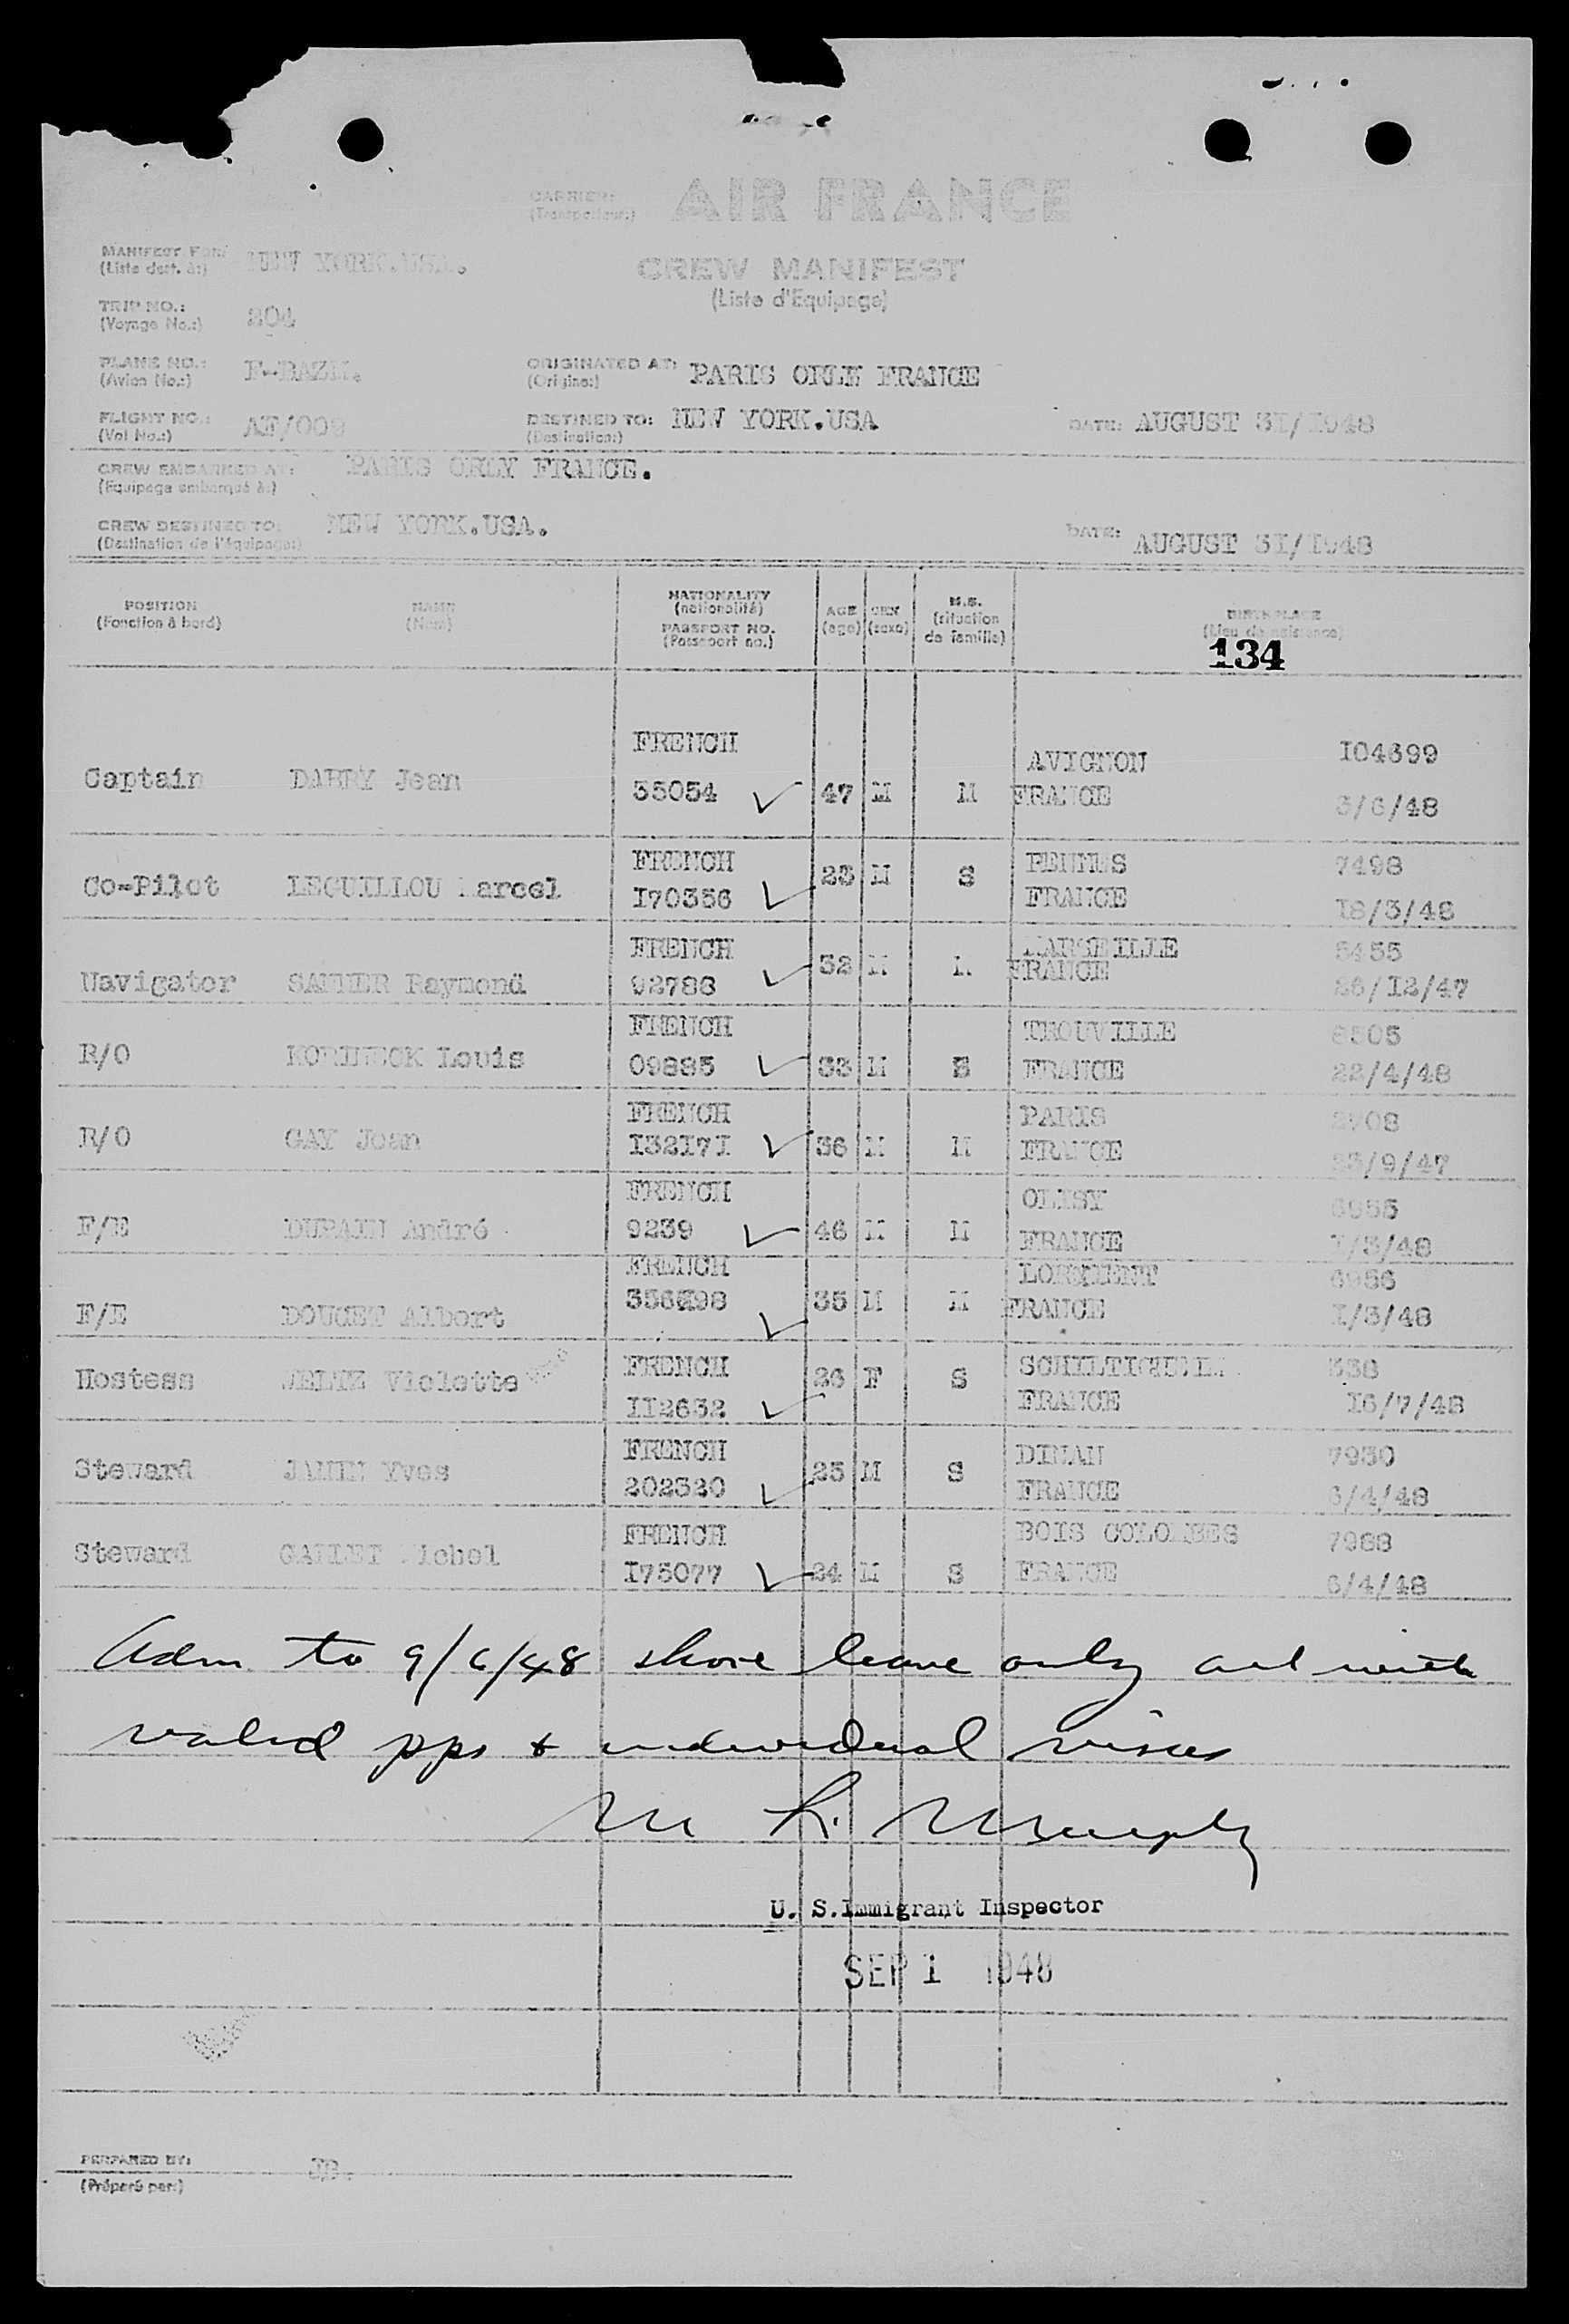 CARRIER: AIR FRANCE
(Transporteur:)
MANIFEST FOR: NEW YORK.USA.
(Liste dest. à:)
CREW MANIFEST
(Liste d'Equipage)
TRIP NO.: 204
(Voyage No.:)
PLANE NO.:
(Avion No.:)
ORIGINATED AT: PARIS ORLY FRANCE
(Origine:)
FLIGHT NO.: AF/009
(Vol No.:)
DESTINED TO: NEW YORK.USA
(Destination:)
DATE: AUGUST 3I/I948
CREW EMBARKED AT: PARIS ORLY FRANCE.
(Equipage embarqué à:)
CREW DESTINED TO: NEW YORK.USA.
(Destination de l'équipage:)
DATE: AUGUST 3I/I948
POSITION
(Fonction à bord)
NAME
(Nom)
NATIONALITY
(nationalité)
PASSPORT NO.
(Passeport no.)
AGE
(age)
SEX
(sexe)
M.S.
(situction
de famille)
BIRTHPLACE
(Lieu de naissance)
134
FRENCH AVIGNON I04699
Captain DABRY Jean 35054 47 M M FRANCE 3/6/48
FRENCH 23 M S RENNES 7498
Co-Pilot LEGUILLOU Marcel I70356 FRANCE I8/3/48
FRENCH 32 M M MARSEILLE 5455
Navigator Raymond 92788 FRANCE 26/I2/47
FRENCH TROUVILLE 8505
R/O Louis 09885 33 M S FRANCE 22/4/48
FRENCH PARIS
R/O GAY Jean I32I7I 36 M M FRANCE 23/9/47
FRENCH OLISY 6955
F/E DURAIN André 9239 46 M M FRANCE I/3/48
FRENCH LORMENT 6956
F/E DOUCET Albert 35 M M FRANCE I/3/48
FRENCH 26 F S 338
Hostess WELTZ Violette II2632 FRANCE I6/7/48
FRENCH DINAN 7930
Steward JAMIN Yves 202320 25 M S FRANCE 6/4/48
FRENCH BOIS COLOMBES 7988
Steward GALLET Michel I75077 24 M S FRANCE 6/4/48
Adm to 9/6/48 shore leave only all with
valid pps & individual visas
M R. Murphy
U. S.Immigrant Inspector
SEP 1 1948
PERPARED BY: JB.
(Préparé par:)